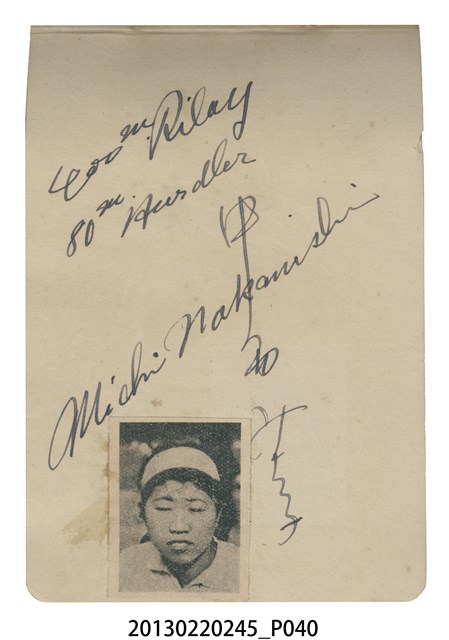 400m Rilay
80m Hurdler
Michi Nakanishi
中西
20130220245_P040